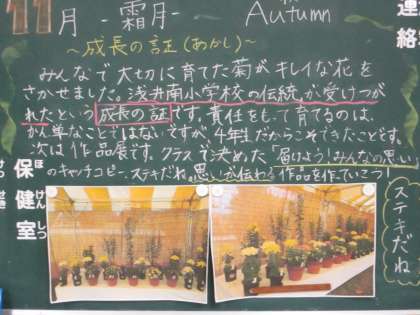 11月 -霜月- Autumn
連絡
～成長の証(あかし)～
みんなで大切に育てた菊がキレイな花を
さかせました。浅井南小学校の伝統が受けつが
れたという成長の証です。責任をもって育てるのは、
かん単なことではないですが、4年生だからこそできたことです。
次は作品展です。クラスで決めた「届けよう!みんなの思い」
のキャッチコピー、ステキだね。思いが伝わる作品を作っていこう!
ステキだね
保健室
ほけんしつ